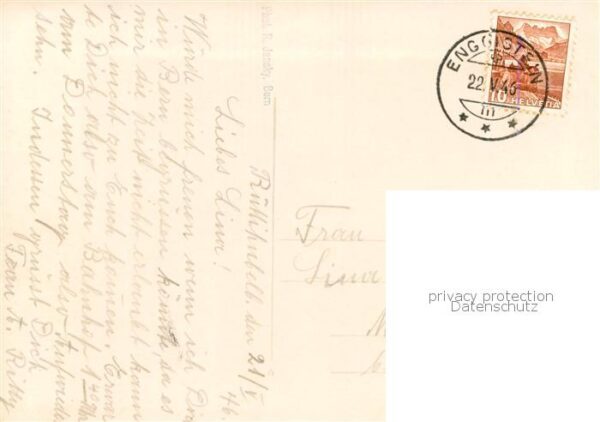 Rüttihubelb. den 21/V
46.
Liebes Lina!
Würde mich freuen wenn ich Dich
in Bern begrüssen könnte, da es
mir die Zeit nicht erlaubt kann
ich nicht zu Euch kommen. Erwar
te Dich also am Bahnhof 1 40 Uhr
am Donnerstag also Aufwieder
sehn. Indessen grüsst Dich
Frau A.
Phot. R. Jonsky, Bern
ENGGISTEIN
22.V.46
10 HELVETIA
Frau
Lina
privacy protection
Datenschutz